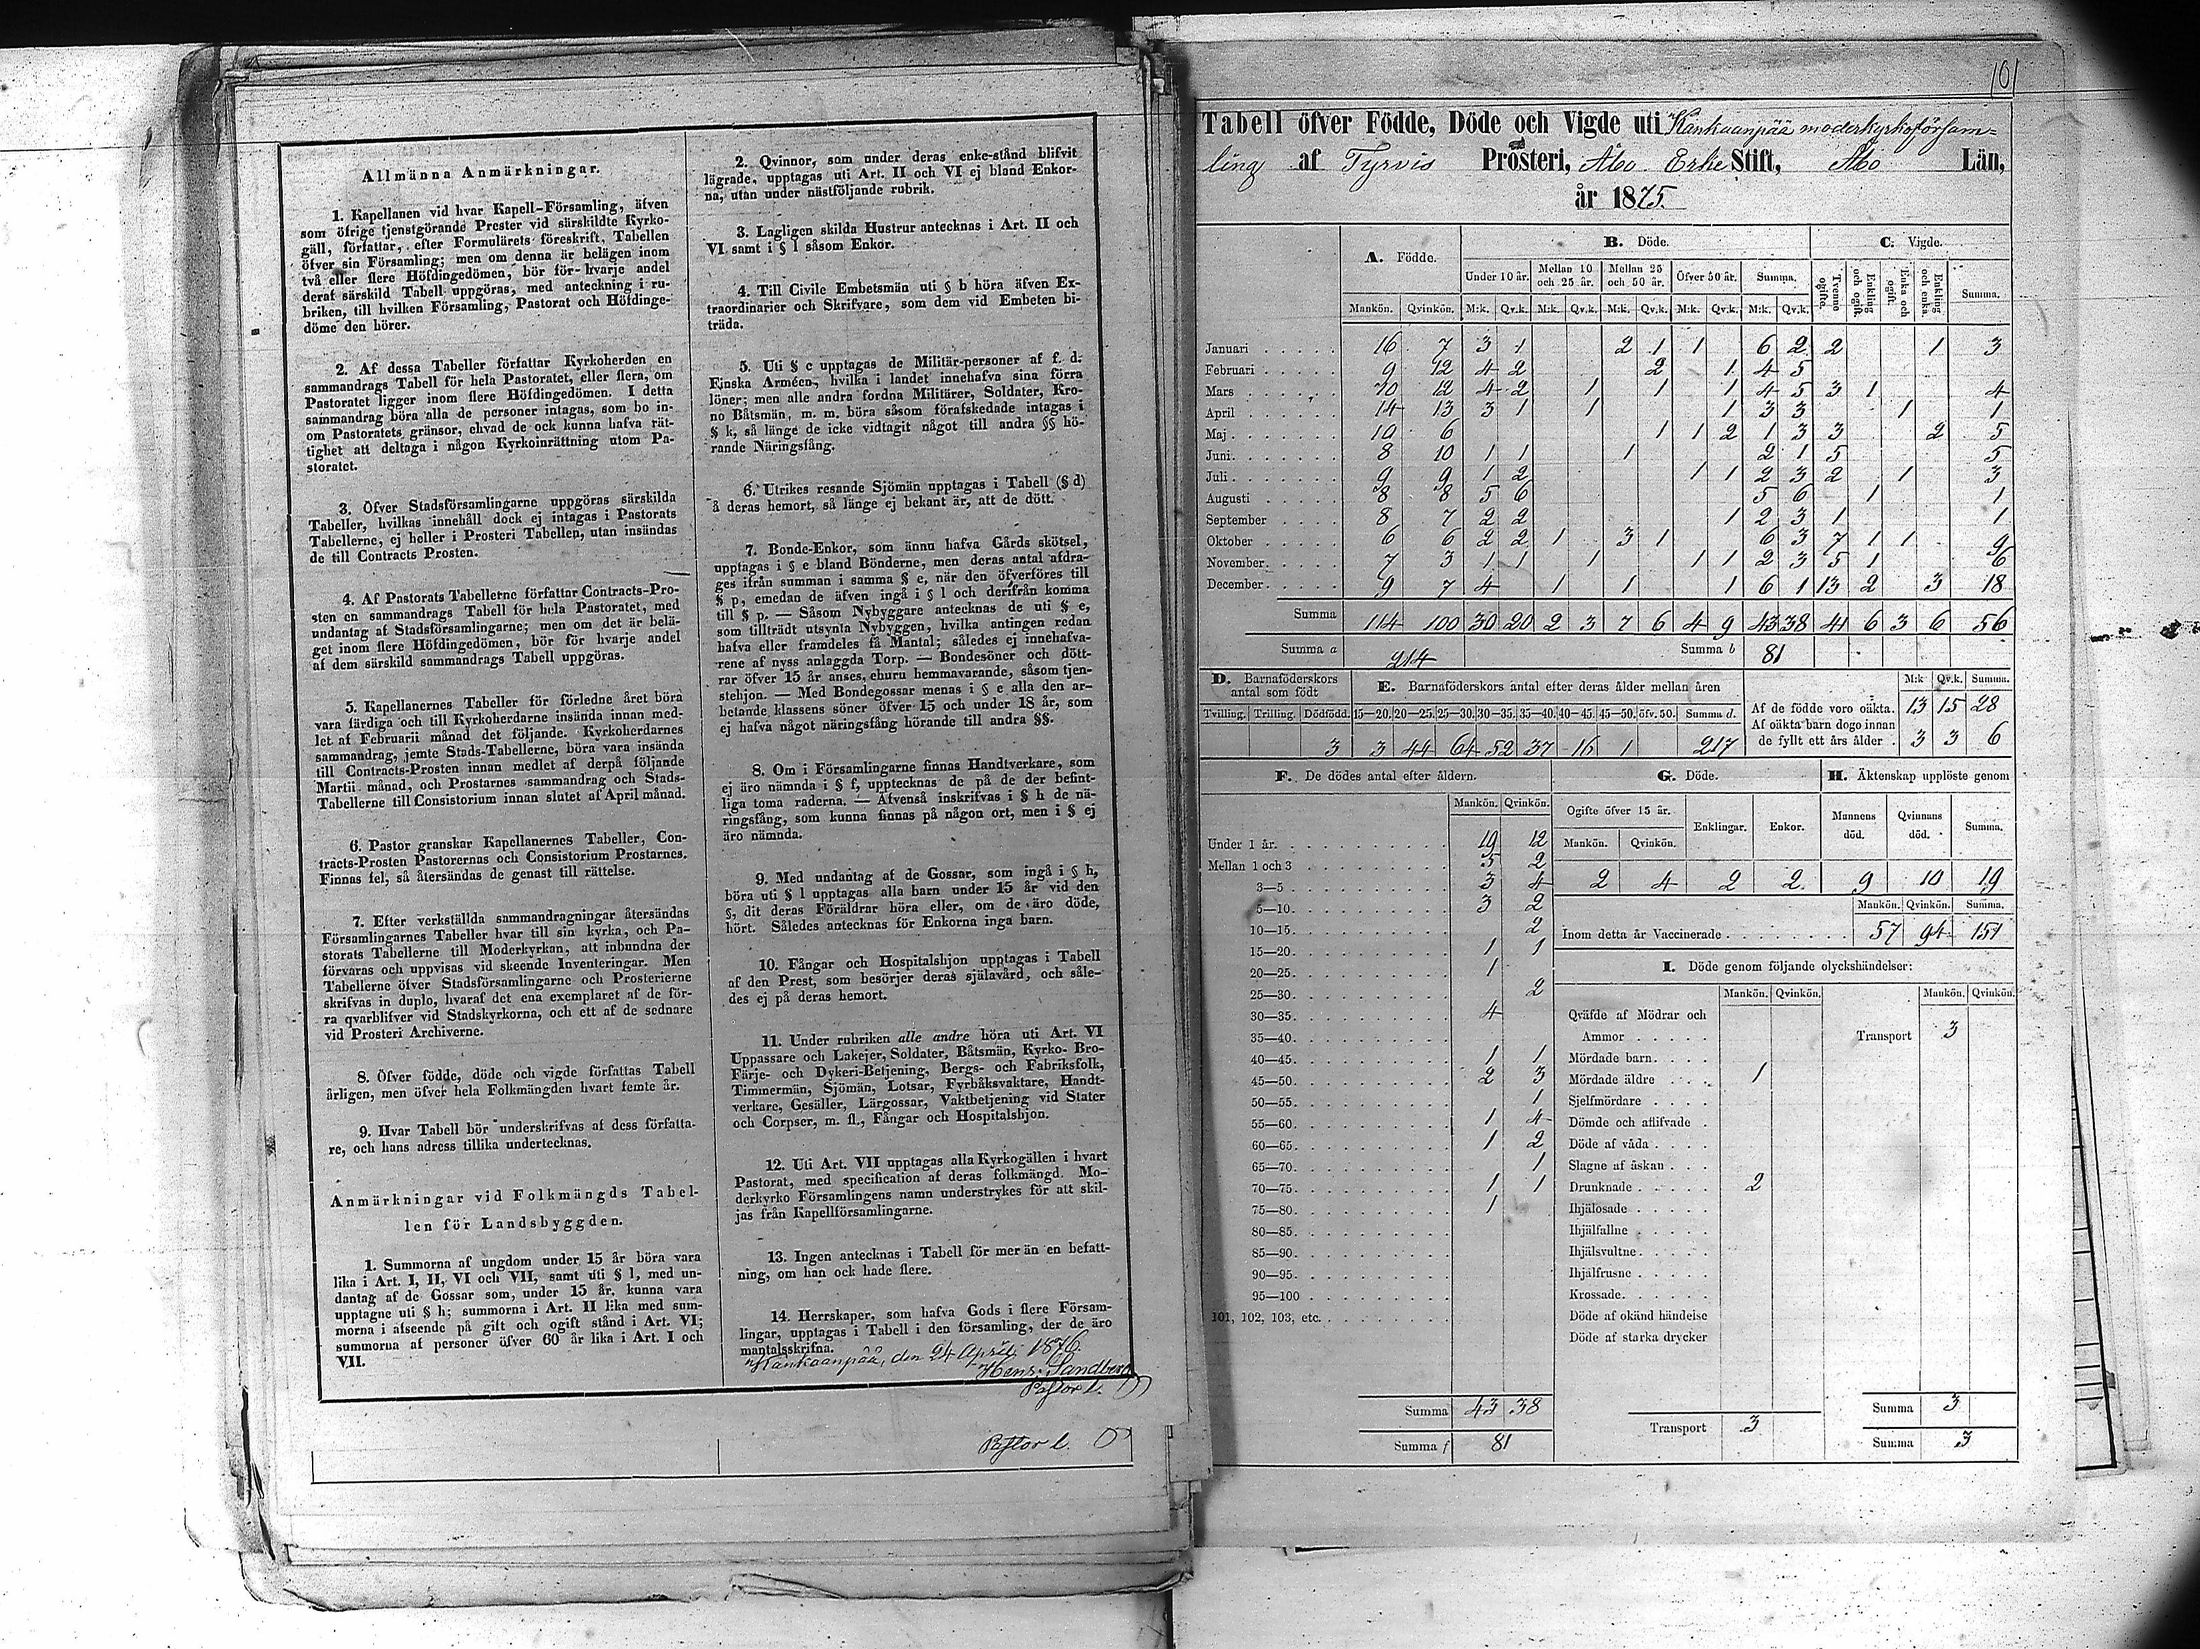 Allmänna Anmärkningar.
1. Kapellanen vid hvar Kapell-Församling, äfven
som öfrige tjenstgörande Prester vid särskildte Kyrko-
gäll, författar, efter Formulärets föreskrift, Tabellen
öfver sin Församling; men om denna är belägen inom
två eller flere Höfdingedömen, bör för hvarje andel
deraf särskild Tabell uppgöras, med anteckning i ru-
briken, till hvilken Församling, Pastorat och Höfdinge-
döme den hörer.
2. Af dessa Tabeller författar Kyrkoherden en
sammandrags Tabell för hela Pastoratet, eller flera, om
Pastoratet ligger inom flere Höfdingedömen. I detta
sammandrag böra alla de personer intagas, som bo in-
om Pastoratets gränsor, ehvad de ock kunna hafva rät-
tighet att deltaga i någon Kyrkoinrättning utom Pa-
storatet.
3. Öfver Stadsförsamlingarne uppgöras särskilda
Tabeller, hvilkas innehåll dock ej intagas i Pastorats
Tabellerne, ej heller i Prosteri Tabellen, utan insändas
de till Contracts Prosten.
4. Af Pastorats Tabellerne författar Contracts-Pro-
sten en sammandrags Tabell för hela Pastoratet, med
undantag af Stadsförsamlingarne; men om det är belä-
get inom flere Höfdingedömen, bör för hvarje andel
af dem särskild sammandrags Tabell uppgöras.
5. Kapellanernes Tabeller för förledne året böra
vara färdiga och till Kyrkoherdarne insända innan med-
let af Februarii månad det följande. Kyrkoherdarnes
sammandrag, jemte Stads-Tabellerne, böra vara insända
till Contracts-Prosten innan medlet af derpå följande
Martii månad, och Prostarnes sammandrag och Stads-
Tabellerne till Consistorium innan slutet af April månad.
6. Pastor granskar Kapellanernes Tabeller, Con-
tracts-Prosten Pastorernas och Consistorium Prostarnes.
Finnas fel, så återsändas de genast till rättelse.
7. Efter verkställda sammandragningar återsändas
Församlingarnes Tabeller hvar till sin kyrka, och Pa-
storats Tabellerne till Moderkyrkan, att inbundna der
förvaras och uppvisas vid skeende Inventeringar. Men
Tabellerne öfver Stadsförsamlingarne och Prosterierne
skrifvas in duplo, hvaraf det ena exemplaret af de för-
ra qvarblifver vid Stadskyrkorna, och ett af de sednare
vid Prosteri Archiverne.
8. Öfver födde, döde och vigde författas Tabell
årligen, men öfver hela Folkmängden hvart femte år.
9. Hvar Tabell bör underskrifvas af dess författa-
re, och hans adress tillika undertecknas.
Anmärkningar vid Folkmängds Tabel-
len för Landsbyggden.
1. Summorna af ungdom under 15 år böra vara
lika i Art. I, II, VI och VII, samt uti § l, med un-
dantag af de Gossar som, under 15 år, kunna vara
upptagne uti § h; summorna i Art. II lika med sum-
morna i afseende på gift och ogift stånd i Art. VI;
summorna af personer öfver 60 år lika i Art. I och
VII.
2. Qvinnor, som under deras enke-stånd blifvit
lägrade, upptagas uti Art. II och VI ej bland Enkor-
na, utan under nästföljande rubrik.
3. Lagligen skilda Hustrur antecknas i Art. II och
VI samt i § l såsom Enkor.
4. Till Civile Embetsmän uti § b höra äfven Ex-
traordinarier och Skrifvare, som dem vid Embeten bi-
träda.
5. Uti § c upptagas de Militär-personer af f. d.
Finska Arméen, hvilka i landet innehafva sina förra
löner; men alle andra fordna Militärer, Soldater, Kro-
no Båtsmän, m. m. böra såsom förafskedade intagas i
§ k, så länge de icke vidtagit något till andra §§ hö-
rande Näringsfång.
6. Utrikes resande Sjömän upptagas i Tabell (§ d)
å deras hemort, så länge ej bekant är, att de dött.
7. Bonde-Enkor, som ännu hafva Gårds skötsel,
upptagas i § e bland Bönderne, men deras antal afdra-
ges ifrån summan i samma § e, när den öfverföres till
§ p, emedan de äfven ingå i § l och derifrån komma
till § p. — Såsom Nybyggare antecknas de uti § e,
som tillträdt utsynta Nybyggen, hvilka antingen redan
hafva eller framdeles få Mantal; således ej innehafva-
rene af nyss anlaggda Torp. — Bondesöner och dött-
rar öfver 15 år anses, ehuru hemmavarande, såsom tjen-
stehjon. — Med Bondegossar menas i § e alla den ar-
betande klassens söner öfver 15 och under 18 år, som
ej hafva något näringsfång hörande till andra §§.
8. Om i Församlingarne finnas Handtverkare, som
ej äro nämnda i § f, upptecknas de på de der befint-
liga toma raderna. — Äfvenså inskrifvas i § h de nä-
ringsfång, som kunna finnas på någon ort, men i § ej
äro nämnda.
9. Med undantag af de Gossar, som ingå i § h,
böra uti § l upptagas alla barn under 15 år vid den
§, dit deras Föräldrar höra eller, om de äro döde,
hört. Således antecknas för Enkorna inga barn.
10. Fångar och Hospitalshjon upptagas i Tabell
af den Prest, som besörjer deras själavård, och såle-
des ej på deras hemort.
11. Under rubriken alle andre höra uti Art. VI
Uppassare och Lakejer, Soldater, Båtsmän, Kyrko- Bro-
Färje- och Dykeri-Betjening, Bergs- och Fabriksfolk,
Timmermän, Sjömän, Lotsar, Fyrbåksvaktare, Handt-
verkare, Gesäller, Lärgossar, Vaktbetjening vid Stater
och Corpser, m. fl., Fångar och Hospitalshjon.
12. Uti Art. VII upptagas alla Kyrkogällen i hvart
Pastorat, med specification af deras folkmängd. Mo-
derkyrko Församlingens namn understrykes för att skil-
jas från Kapellförsamlingarne.
13. Ingen antecknas i Tabell för mer än en befatt-
ning, om han ock hade flere.
14. Herrskaper, som hafva Gods i flere Försam-
lingar, upptagas i Tabell i den församling, der de äro
mantalsskrifna.
Kankaanpää, den 24 April 1876.
Henr. Sandberg
Pastor l.
Pastor l.
101
Tabell öfver Födde, Döde och Vigde uti Kankaanpää moderkyrkoförsam=
ling af Tyrvis Prosteri, Åbo Erke Stift, Åbo Län,
år 1875.
A. Födde. B. Döde. C. Vigde.
Under 10 år. Mellan 10 och 25 år. Mellan 25 och 50 år. Öfver 50 år. Summa. Tvenne ogifte. Enkling och ogift. Enka och ogift. Enkling och enka. Summa.
Mankön. Qvinkön. M:k. Qv.k. M:k. Qv.k. M:k. Qv.k. M:k. Qv.k. M:k. Qv.k.
Januari 16 7 3 1 2 1 1 6 2 2 1 3
Februari 9 12 4 2 2 1 4 5
Mars 10 12 4 2 1 1 1 4 5 3 1 4
April 14 13 3 1 1 1 3 3 1 1
Maj 10 6 1 1 2 1 3 3 2 5
Juni 8 10 1 1 1 2 1 5 5
Juli 9 9 1 2 1 1 2 3 2 1 3
Augusti 8 8 5 6 5 6 1 1
September 8 7 2 2 1 2 3 1 1
Oktober 6 6 2 2 1 3 1 6 3 7 1 1 9
November 7 3 1 1 1 1 1 2 3 5 1 6
December 9 7 4 1 1 1 6 1 13 2 3 18
Summa 114 100 30 20 2 3 7 6 4 9 43 38 41 6 3 6 56
Summa a 214 Summa b 81
D. Barnaföderskors antal som födt
E. Barnaföderskors antal efter deras ålder mellan åren
M:k Qv.k. Summa.
Tvilling. Trilling. Dödfödd. 15—20. 20—25. 25—30. 30—35. 35—40. 40—45. 45—50. öfv. 50. Summa d.
3 3 44 64 52 37 16 1 217
Af de födde voro oäkta. 13 15 28
Af oäkta barn dogo innan
de fyllt ett års ålder . 3 3 6
F. De dödes antal efter åldern.
Mankön. Qvinkön.
Under 1 år. 19 12
Mellan 1 och 3 5 2
3—5 3 4
5—10. 3 2
10—15. 2
15—20. 1 1
20—25. 1
25—30. 2
30—35. 4
35—40.
40—45. 1 1
45—50. 2 3
50—55. 1
55—60. 1 4
60—65. 1 2
65—70. 1
70—75. 1 1
75—80. 1
80—85.
85—90.
90—95.
95—100
101, 102, 103, etc.
Summa 43 38
Summa f 81
G. Döde.
Ogifte öfver 15 år. Enklingar. Enkor.
Mankön. Qvinkön.
2 4 2 2
H. Äktenskap upplöste genom
Mannens död. Qvinnans död. Summa.
9 10 19
Mankön. Qvinkön. Summa.
Inom detta år Vaccinerade 57 94 151
I. Döde genom följande olyckshändelser:
Mankön. Qvinkön. Mankön. Qvinkön.
Qväfde af Mödrar och
Ammor
Transport 3
Mördade barn.
Mördade äldre 1
Sjelfmördare
Dömde och aflifvade
Döde af våda
Slagne af åskan
Drunknade 2
Ihjälosade
Ihjälfallne
Ihjälsvultne.
Ihjälfrusne
Krossade.
Döde af okänd händelse
Döde af starka drycker
Transport 3
Summa 3
Summa 3